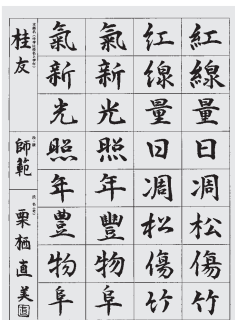 紅線量日凋松傷竹
紅線量日凋松傷竹
氣新光照年豐物阜
氣新光照年豊物阜
桂友 師範 栗栖直美